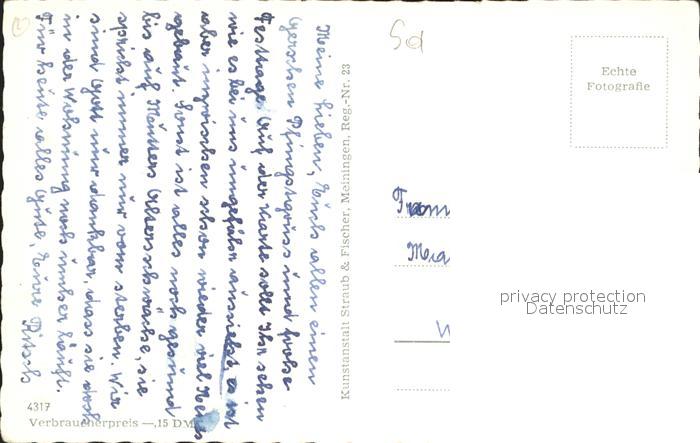 Meine Lieben, Euch allen einen
herzlichen Pfingstgruss und frohe
Festtage! Auf der Karte sollt Ihr sehen
wie es bei uns ungefähr aussieht, es ist
aber inzwischen schon wieder viel Neues
gebaut. Sonst ist alles noch gesund
bis auf Mutters Altersschwäche, sie
spricht immer nur vom sterben. Wir
sind Gott nur dankbar, dass sie doch
in der Wohnung noch umher läuft.
Für heute alles Gute, Eure
Kunstanstalt Straub & Fischer, Meiningen, Reg.-Nr. 23
4317
Verbraucherpreis —,15 DM
Echte
Fotografie
privacy protection
Datenschutz